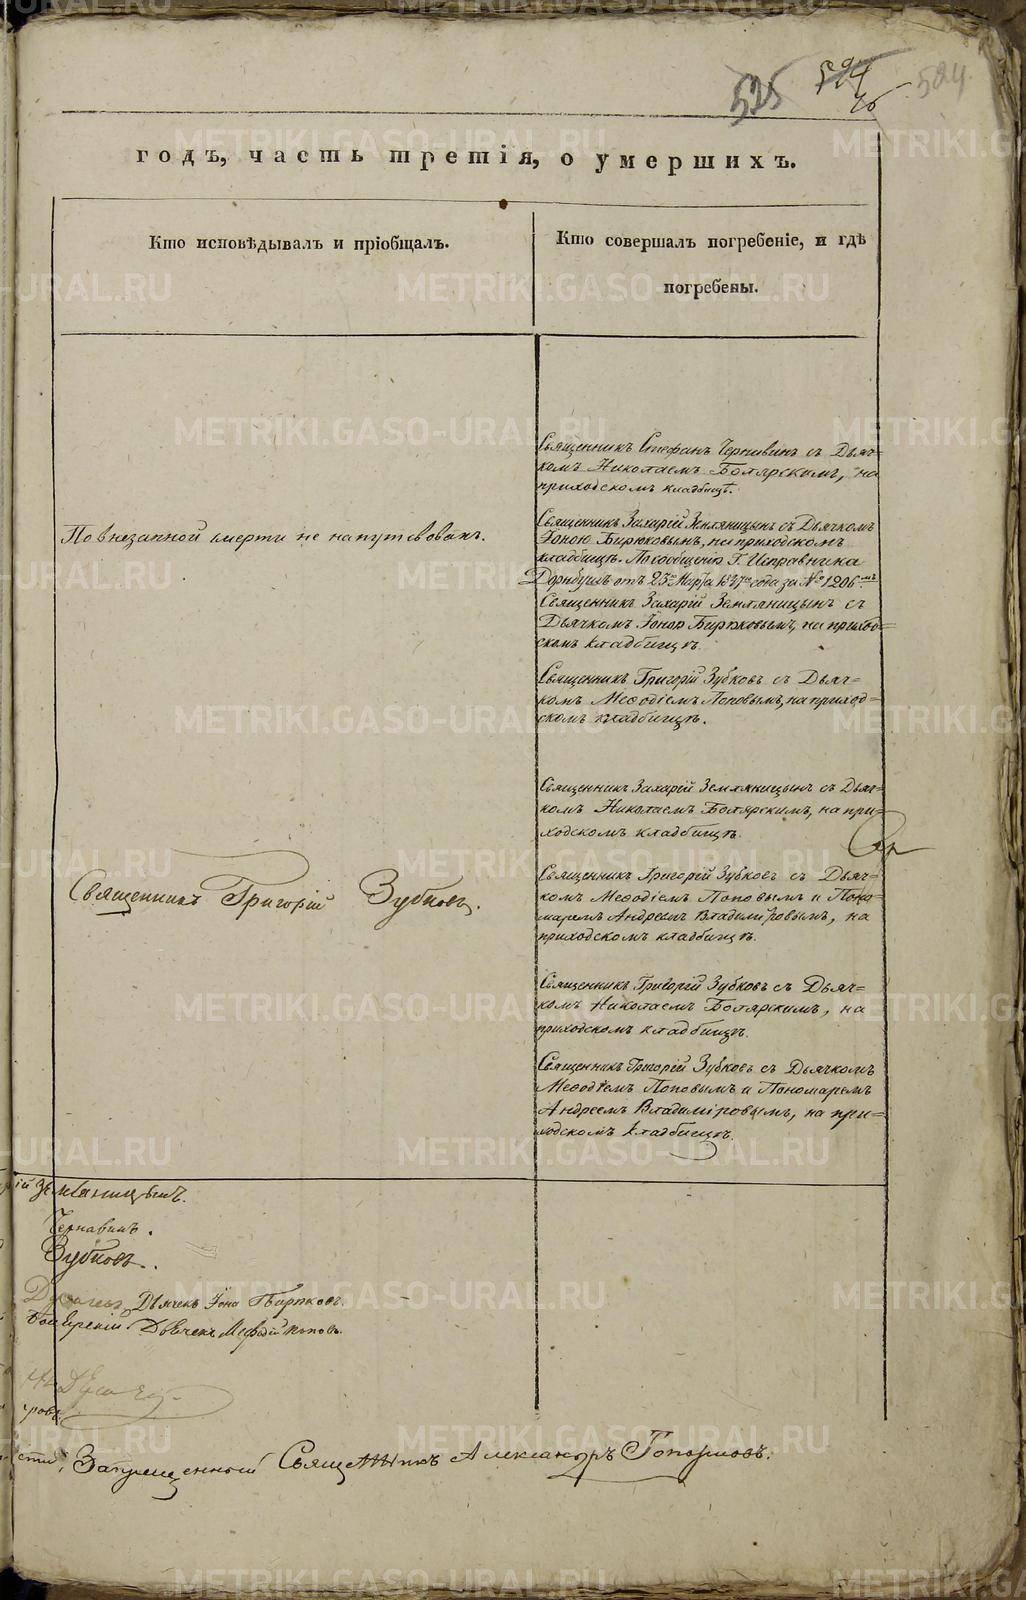 525 524 524.
46
годъ, часть третія, о умершихъ.
Кто исповѣдывалъ и пріобщалъ.
Кто совершалъ погребеніе, и гдѣ
погребены.
Священникъ Стефанъ Чернавинъ съ Дьяч=
комъ Николаемъ Боярскимъ, на
приходскомъ кладбищѣ.
По внезапной смерти не напутствованъ.
Священникъ Захарій Земляницынъ съ Дьячкомъ
Іоною Бирюковымъ, на приходскомъ
кладбищѣ. По сообщенію Г. Исправника
отъ 23го Марта 1837го года за № 1206мъ
Священникъ Захарій Земляницынъ съ
Дьячкомъ Іоною Бирюковымъ, на приход=
скомъ кладбищѣ.
Священникъ Григорій Зубковъ съ Дьяч=
комъ Меѳодіемъ Поповымъ, на приход=
скомъ кладбищѣ.
Священникъ Захарій Земляницынъ съ Дьяч=
комъ Николаемъ Боярскимъ, на при=
ходскомъ кладбищѣ.
Священникъ Григорій Зубковъ.
Священникъ Григорій Зубковъ съ Дьяч=
комъ Меѳодіемъ Поповымъ и Поно=
маремъ Андреемъ Владиміровымъ, на
приходскомъ кладбищѣ.
Священникъ Григорій Зубковъ съ Дьяч=
комъ Николаемъ Боярскимъ, на
приходскомъ кладбищѣ.
Священникъ Григорій Зубковъ съ Дьячкомъ
Меѳодіемъ Поповымъ и Пономаремъ
Андреемъ Владиміровымъ, на при=
ходскомъ кладбищѣ.
рій Земляницынъ.
Чернавинъ.
Зубковъ.
Дьячекъ Іона Бирюковъ.
Боярскій Дьячекъ Меѳодій Поповъ.
ровъ
Запрещенный Священникъ Александръ Топорковъ.
METRIKI.GASO-URAL.RU